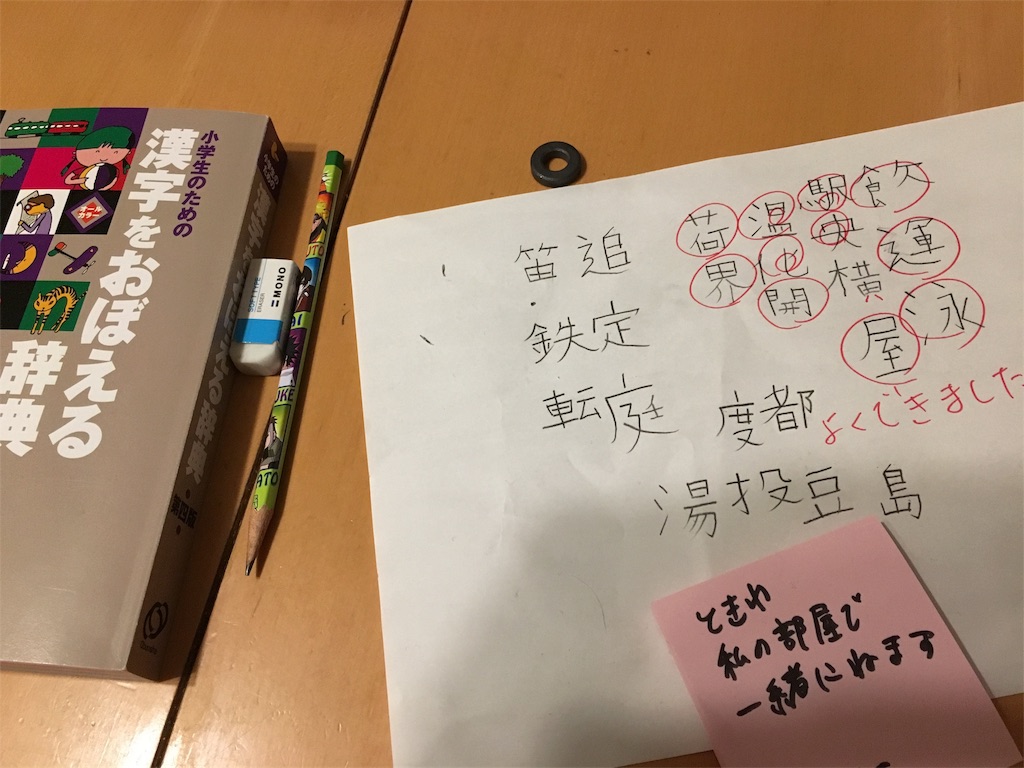 小学生のための
漢字をおぼえる
辞典
オールカラー
第四版
MONO
荷温駅飲
界化央運
開横
屋泳
よくできました
笛追
鉄定
転庭 度都
湯投豆島
ときわ
私の部屋で
一緒にねます